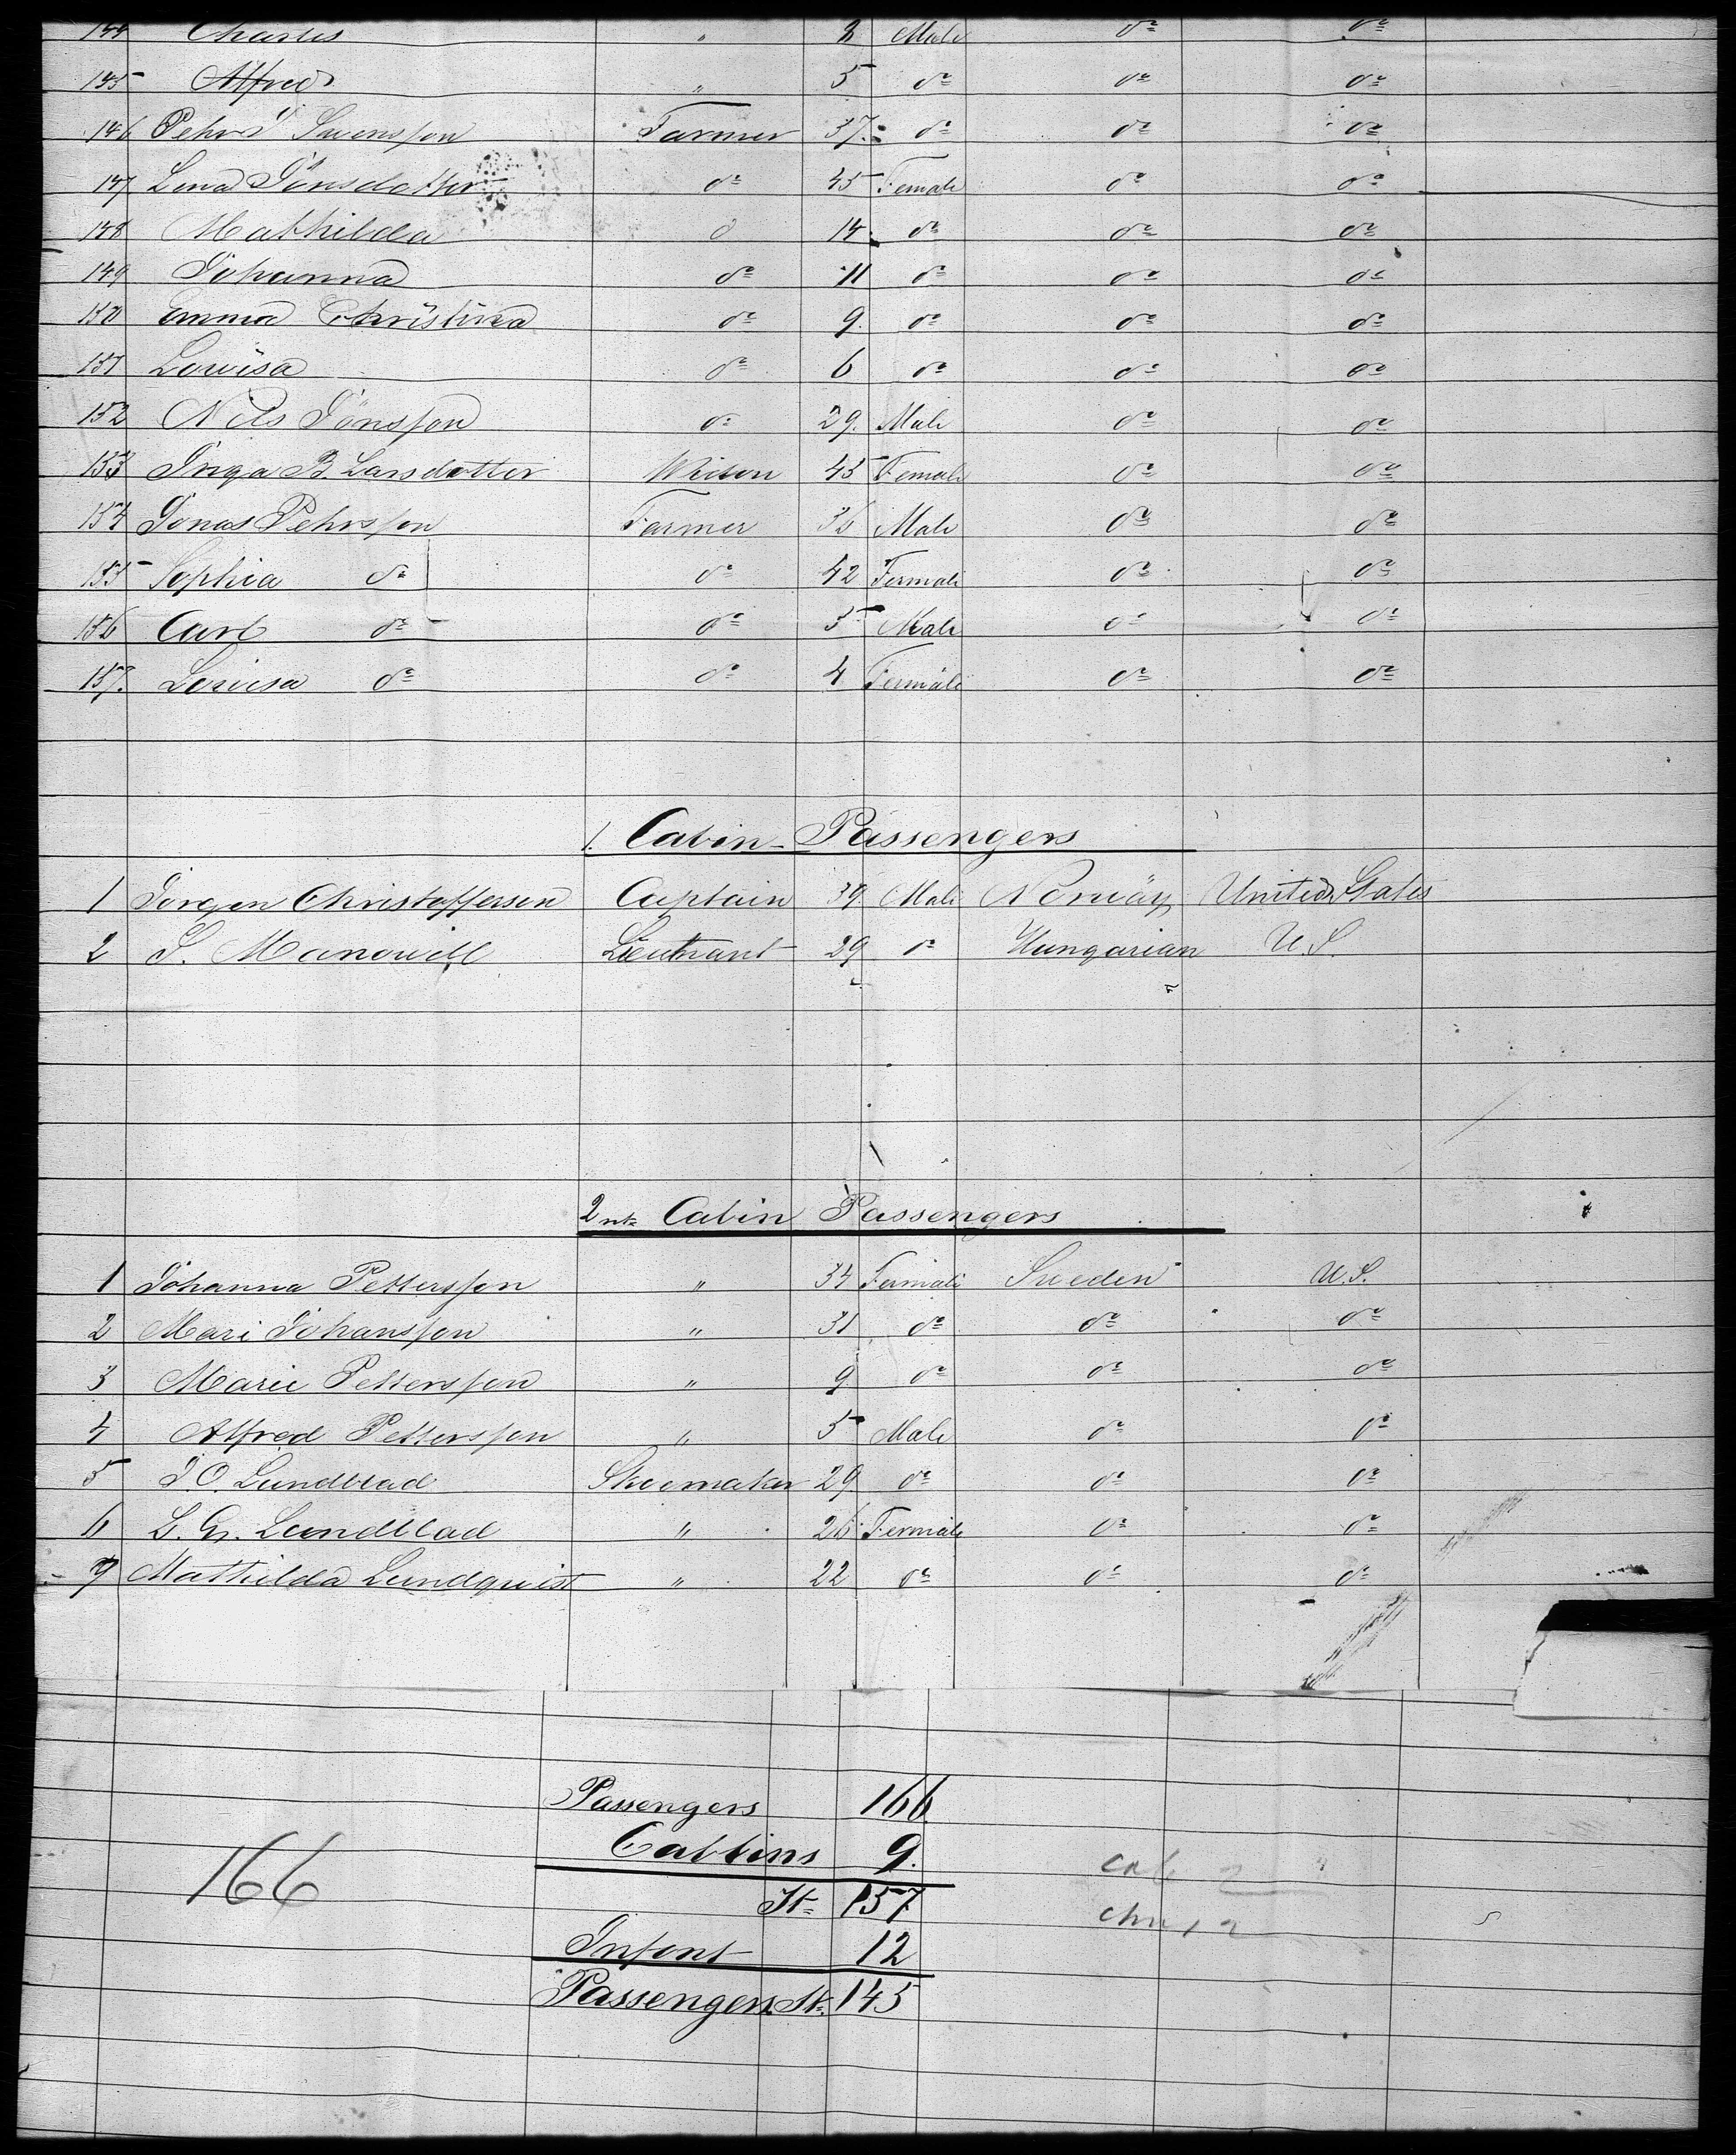 144 Charles " 8 Male do do
145 Alfred " 5 do do do
146 Pehr S Svensson Farmer 37 do do do
147 Lena Jönsdotter do 45 Female do do
148 Mathilda d 14 do do do
149 Johanna do 11 do do do
150 Emma Christina do 9. do do do
151 Lovisa do 6 do do do
152 Nils Jönsson do 29. Male do do
153 Inga B. Larsdotter 45 Female do do
154 Jonas Pehrsson Farmer 36 Male do do
155 Sophia do do 42 Female do do
156 Carl do do 5 Male do do
157. Lovisa do do 4 Female do do
1. Cabin Passengers
1 Jörgen Christoffersen Captain 39 Male Norway United States
2 S. Lieutnant 29 do Hungarian U.S.
2nt Cabin Passengers
1 Johanna Pettersson " 34 Female Sweden U.S.
2 Mari Johansson " 31 do do do
3 Marie Pettersson " 9 do do do
4 Alfred Pettersson " 5 Male do do
5 J.O. Lundblad Shoemaker 29 do do do
6 L. G. Lundblad " 26 Female do do
7 Mathilda Lundquist " 22 do do do
Passengers 166
Cabbins 9.
166
St 157
Infant 12
Passengers St. 145